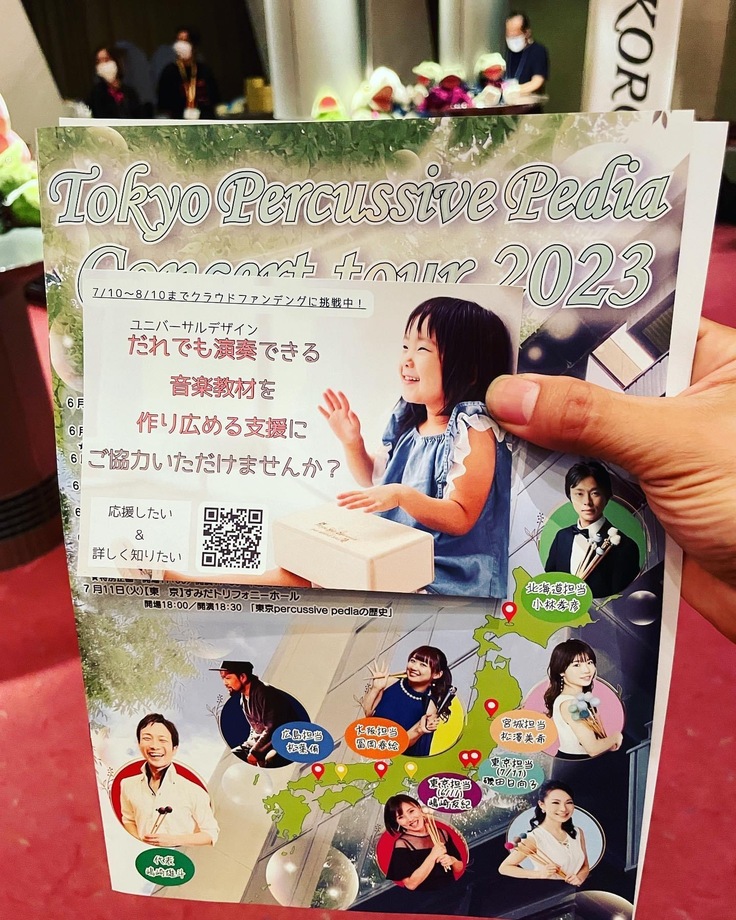 KORO
Tokyo Percussive Pedia
Concert tour 2023
7/10〜8/10までクラウドファンデングに挑戦中!
ユニバーサルデザイン
だれでも演奏できる
音楽教材を
作り広める支援に
ご協力いただけませんか?
応援したい
&
詳しく知りたい
6月
6月
6月
6
6
7月11日(火)【東 京】すみだトリフォニーホール
開場18:00/開演18:30 「東京percussive pediaの歴史」
北海道担当
小林孝彦
宮城担当
松澤美希
大阪担当
冨岡春絵
広島担当
東京担当
(7/11)
東京担当
嶋崎友紀
代表
嶋崎雄斗